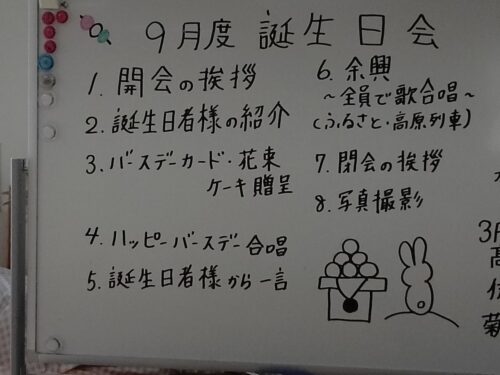 9月度 誕生日会
1. 開会の挨拶
2. 誕生日者様の紹介
3. バースデーカード・花束
ケーキ贈呈
4. ハッピーバースデー合唱
5. 誕生日者様から一言
6. 余興
～全員で歌合唱～
(ふるさと・高原列車)
7. 閉会の挨拶
8. 写真撮影